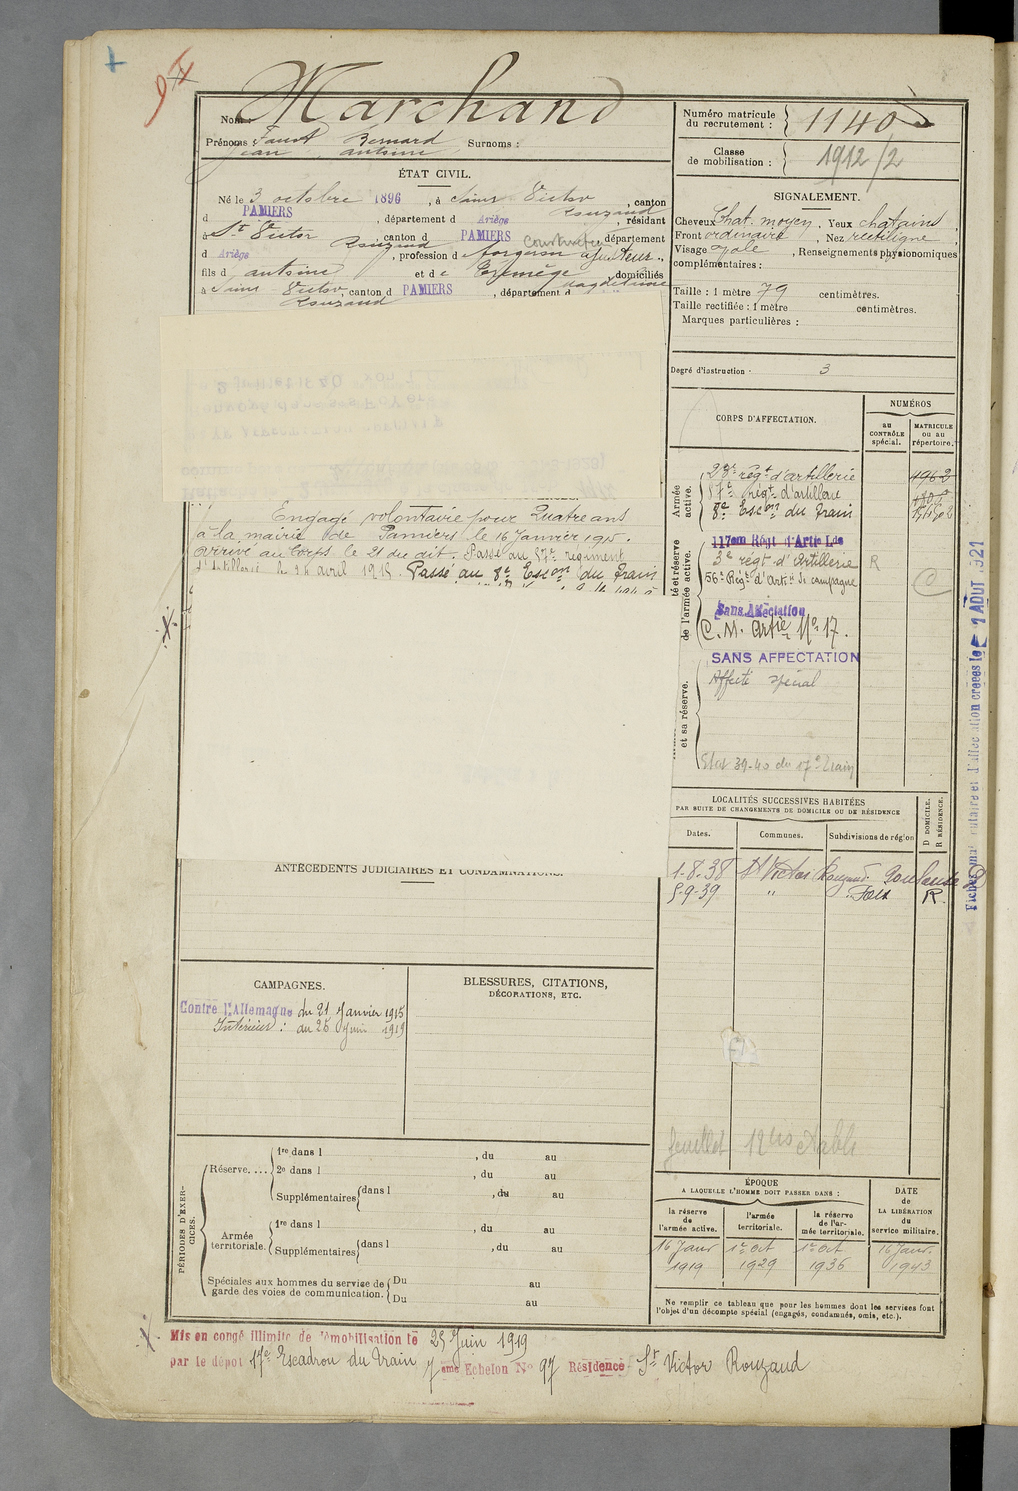 Marchand
Nom
Prénoms Faust Bernard Surnoms :
Jean Antoine
ÉTAT CIVIL.
Né le 3 octobre 1896, à Saint Victor, canton
Rouzaud
d PAMIERS, département d Ariège, résidant
à St Victor Rouzaud, canton d PAMIERS, département
d Ariège, profession d forgeron ajusteur
Construction
fils d Antoine et de Magdeleine, domiciliés
à Saint-Victor, canton d PAMIERS, département d
Rouzaud
Numéro matricule du recrutement : 1140
Classe de mobilisation : 1912/2
SIGNALEMENT.
Cheveux Chat. moyen, Yeux chatains
Front ordinaire, Nez rectiligne
Visage ovale, Renseignements physionomiques
complémentaires :
Taille : 1 mètre 79 centimètres.
Taille rectifiée : 1 mètre centimètres.
Marques particulières :
Degré d'instruction 3
Engagé volontaire pour Quatre ans
à la mairie de Pamiers le 16 Janvier 1915.
Arrivé au Corps le 21 du dit. Passé au 57e régiment
d'Artillerie le 24 avril 1915. Passé au 8e Escon du Train
CORPS D'AFFECTATION.
NUMÉROS
au CONTRÔLE spécial.
MATRICULE ou au répertoire.
Armée active.
23e régt d'artillerie 4962
57e régt d'artillerie
8e Escon du Train
et réserve de l'armée active.
117em Régt d'Artie Lde
3e régt d'Artillerie R
56e Régt d'Artie de campagne C
Sans Affectation
C. M. Artie No 17.
et sa réserve.
SANS AFFECTATION
Affecté spécial
Etat 39-40 du 17e Train
Fiches matriculaire et d'affectation créées le 1 AOUT 1921
LOCALITÉS SUCCESSIVES HABITÉES
PAR SUITE DE CHANGEMENTS DE DOMICILE OU DE RÉSIDENCE
Dates.
Communes.
Subdivisions de région
D DOMICILE.
R RÉSIDENCE.
1-8-38 St Victor Rouzaud Toulouse D
5-9-39 " Foix R.
ANTÉCÉDENTS JUDICIAIRES ET CONDAMNATIONS.
CAMPAGNES.
Contre l'Allemagne du 21 Janvier 1915
Intérieur : au 25 Juin 1919
BLESSURES, CITATIONS,
DÉCORATIONS, ETC.
feuillet
PÉRIODES D'EXERCICES.
Réserve....
1re dans l, du au
2e dans l, du au
Supplémentaires dans l, du au
Armée territoriale.
1re dans l, du au
Supplémentaires dans l, du au
Spéciales aux hommes du service de
garde des voies de communication.
Du au
Du au
ÉPOQUE
A LAQUELLE L'HOMME DOIT PASSER DANS :
la réserve de l'armée active.
l'armée territoriale.
la réserve de l'armée territoriale.
DATE de LA LIBÉRATION du service militaire.
16 Janv 1919
1er Oct 1929
1er Oct 1936
16 Janv. 1943
Ne remplir ce tableau que pour les hommes dont les services font
l'objet d'un décompte spécial (engagés, condamnés, omis, etc.).
Mis en congé illimité de démobilisation le 25 Juin 1919
par le dépôt 17e Escadron du Train 7eme Echelon No 97 Résidence St Victor Rouzaud